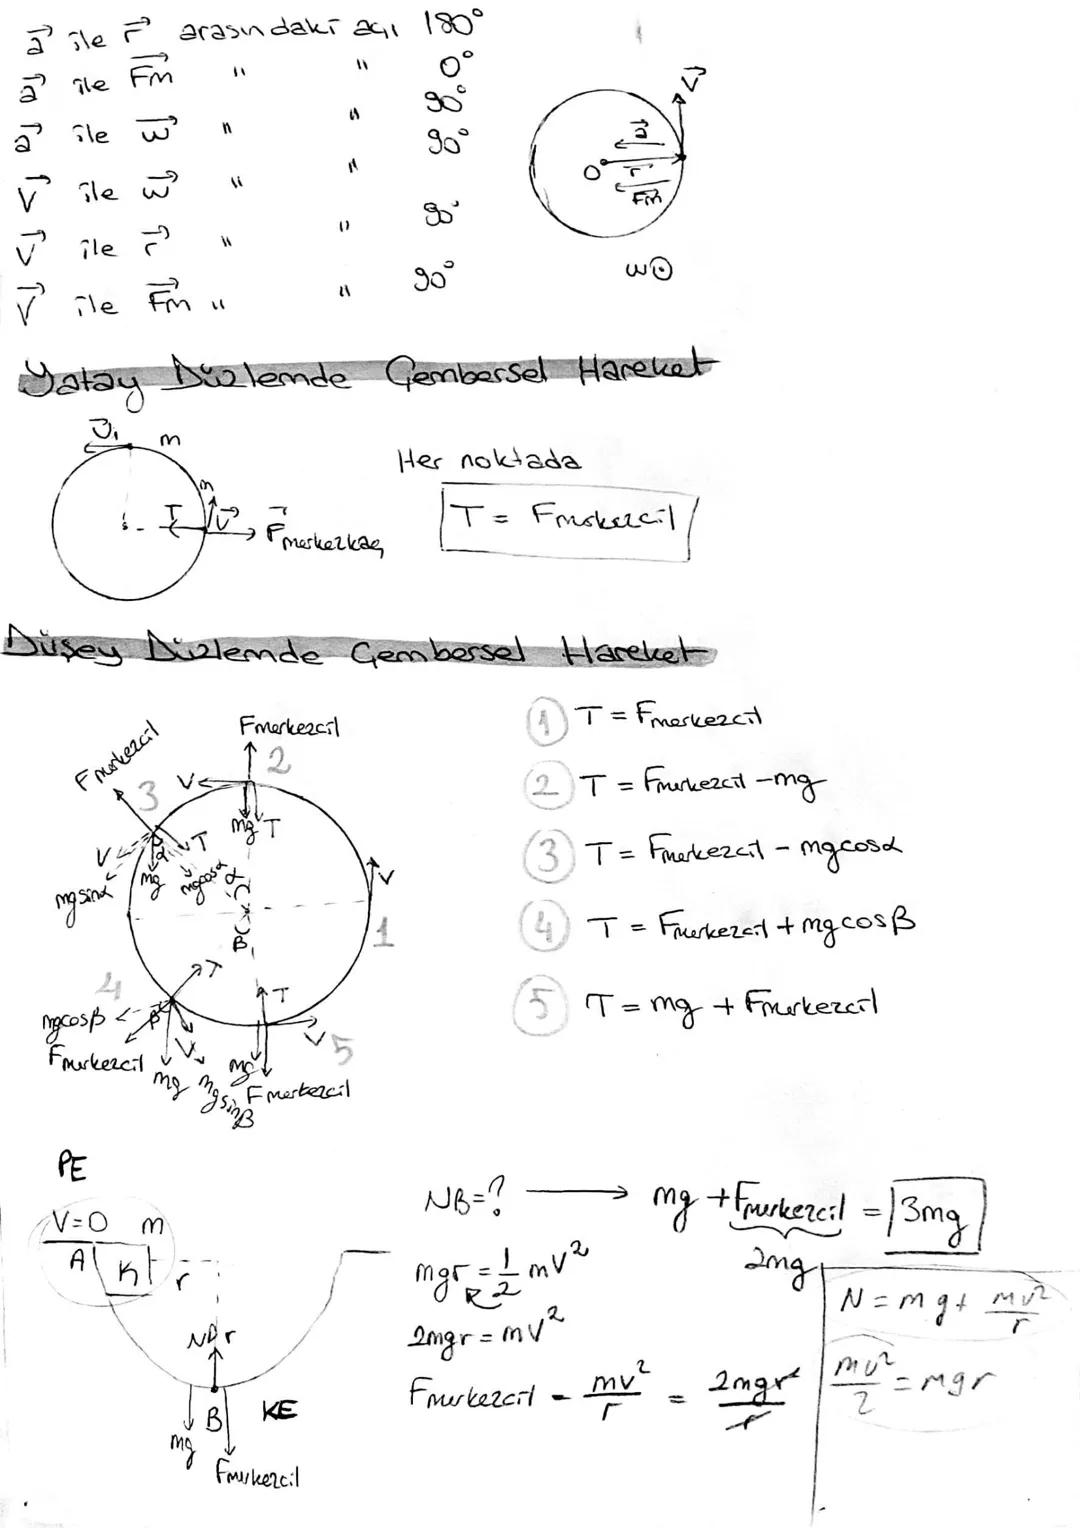 a ile r arasındaki açı 180°
a ile Fm " " 0°
a ile w " " 90°
V ile w " " 90°
V ile r " " 90°
V ile Fm " " 90°
V
a
O r
Fm
w
Yatay Düzlemde Çembersel Hareket
V₁ m
m
T V Fmerkezkaç
Her noktada
T = Fmerkezcil
Düşey Düzlemde Çembersel Hareket
Fmerkezcil
Fmerkezcil
3 V 2
mg T
V T
α
mgsinα mg mgcosα α
V
β 1
4 T
T
mgcosβ β
V 5
Fmerkezcil V mg
mg mgsinβ Fmerkezcil
1 T = Fmerkezcil
2 T = Fmerkezcil - mg
3 T = Fmerkezcil - mgcosα
4 T = Fmerkezcil + mgcosβ
5 T = mg + Fmerkezcil
PE
V=0 m
A K r
r
B KE
mg
Fmerkezcil
NB=? → mg + Fmerkezcil = 3mg
2mg
mgr = 1/2 mV²
2mgr = mV²
Fmerkezcil = mv²/r = 2mgr/r
N = mg + mv²/r
mv²/2 = mgr